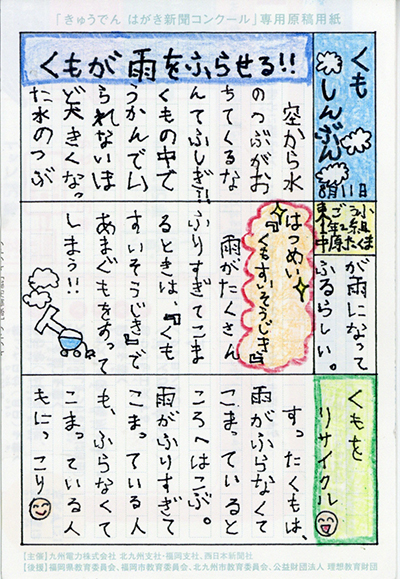 「きゅうでん はがき新聞コンクール」専用原稿用紙
くも
しんぶん
8月11日
くもが雨をふらせる!!
空から水
のつぶがお
ちてくるな
んてふしぎ!!
くもの中で
うかんでい
られないほ
ど大きくなっ
た水のつぶ
が雨になって
ふるらしい。
はつめい
『くもすいそうじき』
雨がたくさん
ふりすぎてこま
るときは、『くも
すいそうじき』で
あまぐもをすって
しまう!!
くもを
リサイクル
すったくもは、
雨がふらなくて
こまっていると
ころへはこぶ。
雨がふりすぎて
こまっている人
も、ふらなくて
こまっている人
もにっこり
【主催】九州電力株式会社 北九州支社・福岡支社、西日本新聞社
【後援】福岡県教育委員会、福岡市教育委員会、北九州市教育委員会、公益財団法人 理想教育財団